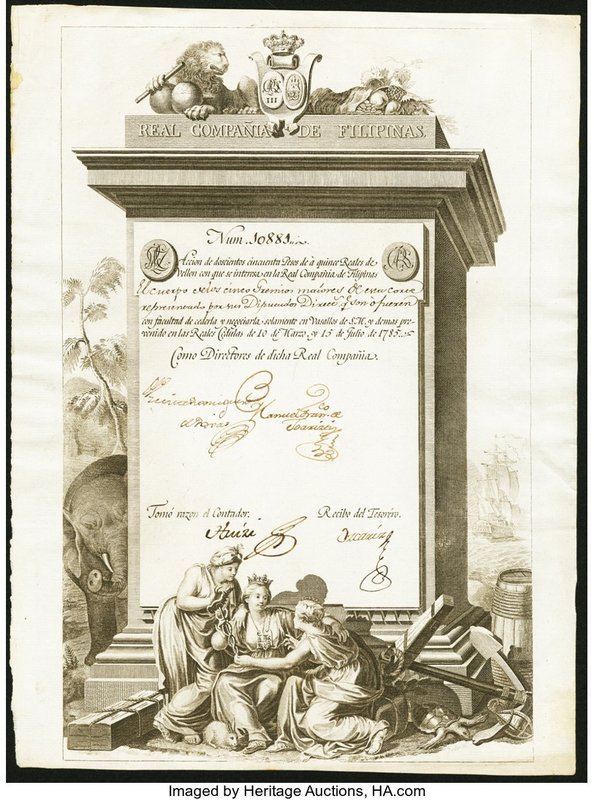 REAL COMPAÑIA DE FILIPINAS.
III
Num. 10881
Accion de doscientos cincuenta Pesos de à quince Reales de
Vellon con que se interesa en la Real Compañia de Filipinas
El cuerpo de los cinco Gremios maiores de esta corte
representado por sus Diputados Direct.s q.e son ò fueren
con facultad de cederla y negociarla solamente en Vasallos de S.M. y demas pre-
venido en las Reales Cédulas de 10 de Marzo y 15 de Julio de 1785.
Como Directores de dicha Real Compañia.
Manuel
Tomó razon el Contador.
Recibo del Tesorero.
Imaged by Heritage Auctions, HA.com